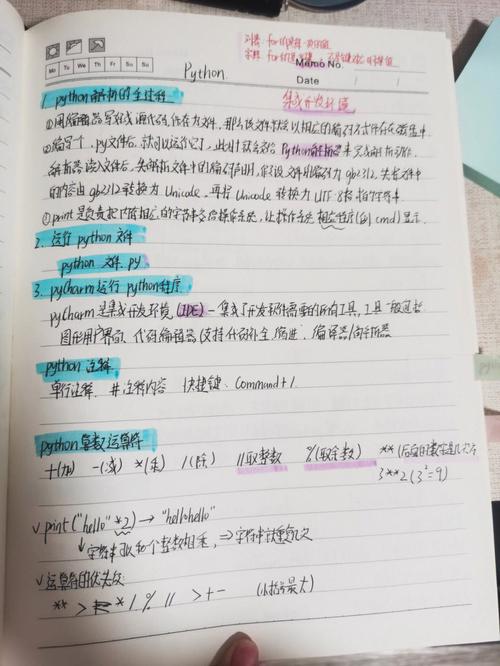 列表 for
字典 for
Memo No.
Mo Tu We Th Fr Sa Su
Python
Date / /
1. python解析的全过程
集成开发环境
①用编辑器写好源代码,保存为文件,那么该文件就会以相应的编码方式保存在磁盘中
②编写个.py文件后,就可以运行了,此时就会交给Python解释器来完成解析动作.
解释器读入文件后,先解析文件中的编码声明,假设文件的编码为gb2312,先将文件中
的内容由gb2312转换为Unicode,再将Unicode转换为UTF-8格式的字符串
print是负责把内存相应的字符串交给操作系统,让操作系统相应程序(如cmd)显示.
2. 运行python文件
python 文件.py
3. pyCharm运行python程序
pyCharm是集成开发环境(IDE)-集成了开发软件需要的所有工具,工具一般包括
图形用户界面、代码编辑器(支持代码补全/缩进)、编译器/解释器
python注释.
单行注释. #注释内容 快捷键、Command+/
python算数运算符
+(加) -(减) *(乘) /(除) //取整数 %(取余数) **
3**2(3²=9)
√print("hello"*2)→"hellohello"
↓字符串可以和个整数相乘,⇒字符串重复几次
√运算符的优先级
** > * / % // > + - (小括号最大)